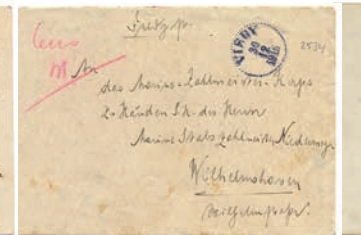 Feldpost.
VIRNY
30
12
1915
2534
Cens
An
das Marine-Zahlmeister-Korps
z. Händen S.H. des Herrn
Marine Stabszahlmeister
Wilhelmshaven